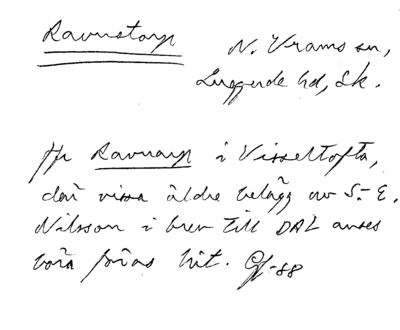 Ravnstorp
N. Vrams sn,
Luggude hd, Sk.
Jfr Ravnarp i Visseltofta,
där vissa äldre belägg av S.-E.
Nilsson i brev till DAL anses
böra föras hit. Gf-88